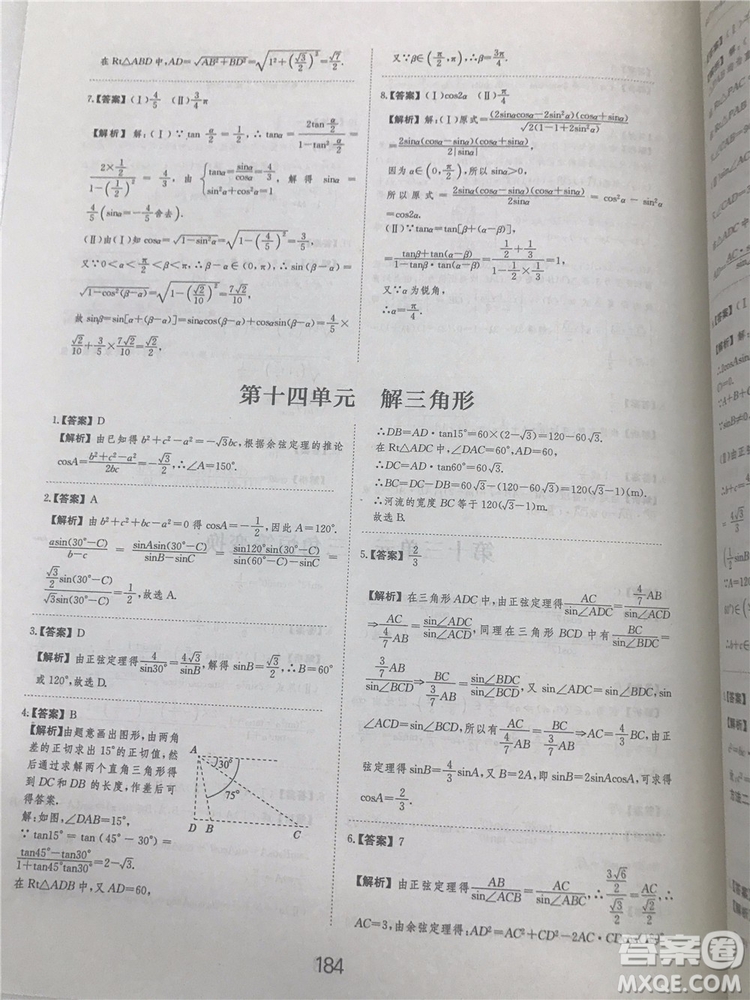 在 Rt△ABD 中，AD=√(AB²+BD²)=√(1²+(√3/2)²)=√7/2.
7.【答案】(Ⅰ)4/5 (Ⅱ)3/4π
【解析】 解：(Ⅰ)∵tan α/2=1/2，∴tanα=2tan(α/2)/(1-tan²(α/2))=
(2×1/2)/(1-(1/2)²)=4/3，由{tanα=sinα/cosα=4/3, sin²α+cos²α=1 解得 sinα=
4/5(sinα=-4/5舍去).
(Ⅱ)由(Ⅰ)知 cosα=√(1-sin²α)=√(1-(4/5)²)=3/5，
又∵0<α<π/2<β<π，∴β-α∈(0,π)，∴sin(β-α)=
√(1-cos²(β-α))=√(1-(√2/10)²)=7√2/10，
故 sinβ=sin[α+(β-α)]=sinαcos(β-α)+cosαsin(β-α)=4/5×
√2/10+3/5×7√2/10=√2/2
又∵β∈(π/2,π)，∴β=3π/4.
8.【答案】(Ⅰ)cos2α (Ⅱ)π/4
【解析】 解：(Ⅰ)原式=(2sinαcosα-2sin²α)(cosα+sinα)/√(2(1-1+2sin²α))
=2sinα(cosα-sinα)(cosα+sinα)/2|sinα|，
因为 α∈(0,π)，所以 sinα>0，
所以原式=2sinα(cosα-sinα)(cosα+sinα)/2sinα=cos²α-sin²α
=cos2α.
(Ⅱ)tanα=tan[β+(α-β)]
=(tanβ+tan(α-β))/(1-tanβ·tan(α-β))=(1/2+1/3)/(1-1/2×1/3)=1，
又∵α为锐角，
∴α=π/4.
第十四单元 解三角形
1.【答案】D
【解析】由已知得 b²+c²-a²=-√3bc，根据余弦定理的推论
cosA=(b²+c²-a²)/2bc=-√3/2，∴A=150°.
2.【答案】A
【解析】由 b²+c²+bc-a²=0 得 cosA=-1/2，因此 A=120°.
asin(30°-C)/(b-c)=sinAsin(30°-C)/(sinB-sinC)=sin120°sin(30°-C)/(sin(60°-C)-sinC)=
(√3/2)sin(30°-C)/√3sin(30°-C)=1/2，故选 A.
3.【答案】D
【解析】由正弦定理得4/sin30°=4√3/sinB，解得 sinB=√3/2，∴B=60°
或 120°，故选 D.
4.【答案】B
【解析】由题意画出图形，由两角
差的正切求出 15°的正切值，然
后通过求解两个直角三角形得
到 DC 和 DB 的长度，作差后可
得答案.
解：如图，∠DAB=15°，
∵tan15°=tan(45°-30°)=
(tan45°-tan30°)/(1+tan45°tan30°)=2-√3.
在 Rt△ADB 中，又 AD=60，
A
30°
75°
D B C
∴DB=AD·tan15°=60×(2-√3)=120-60√3.
在 Rt△ADC 中，∠DAC=60°，AD=60，
∴DC=AD·tan60°=60√3.
∴BC=DC-DB=60√3-(120-60√3)=120(√3-1)(m).
∴河流的宽度 BC 等于 120(√3-1)(m).
故选 B.
5.【答案】2/3
【解析】在三角形 ADC 中，由正弦定理得AC/sin∠ADC=(4/7AB)/sin∠ACD
⇒AC/(4/7AB)=sin∠ADC/sin∠ACD，同理在三角形 BCD 中有BC/sin∠BDC=
(3/7AB)/sin∠BCD⇒BC/(3/7AB)=sin∠BDC/sin∠BCD，又 sin∠ADC=sin∠BDC，sin
∠ACD=sin∠BCD，所以有AC/(4/7AB)=BC/(3/7AB)⇒AC=4/3BC，由正
弦定理得 sinB=4/3sinA，又 B=2A，即 sinB=2sinAcosA，可求得
cosA=2/3.
6.【答案】7
【解析】由正弦定理得AB/sin∠ACB=AC/sin∠ABC，∴(3√6/2)/(√3/2)=AC/(√2/2)，∴
AC=3，由余弦定理得：AD²=AC²+CD²-2AC·CD·
184
答案圈
MXQE.COM